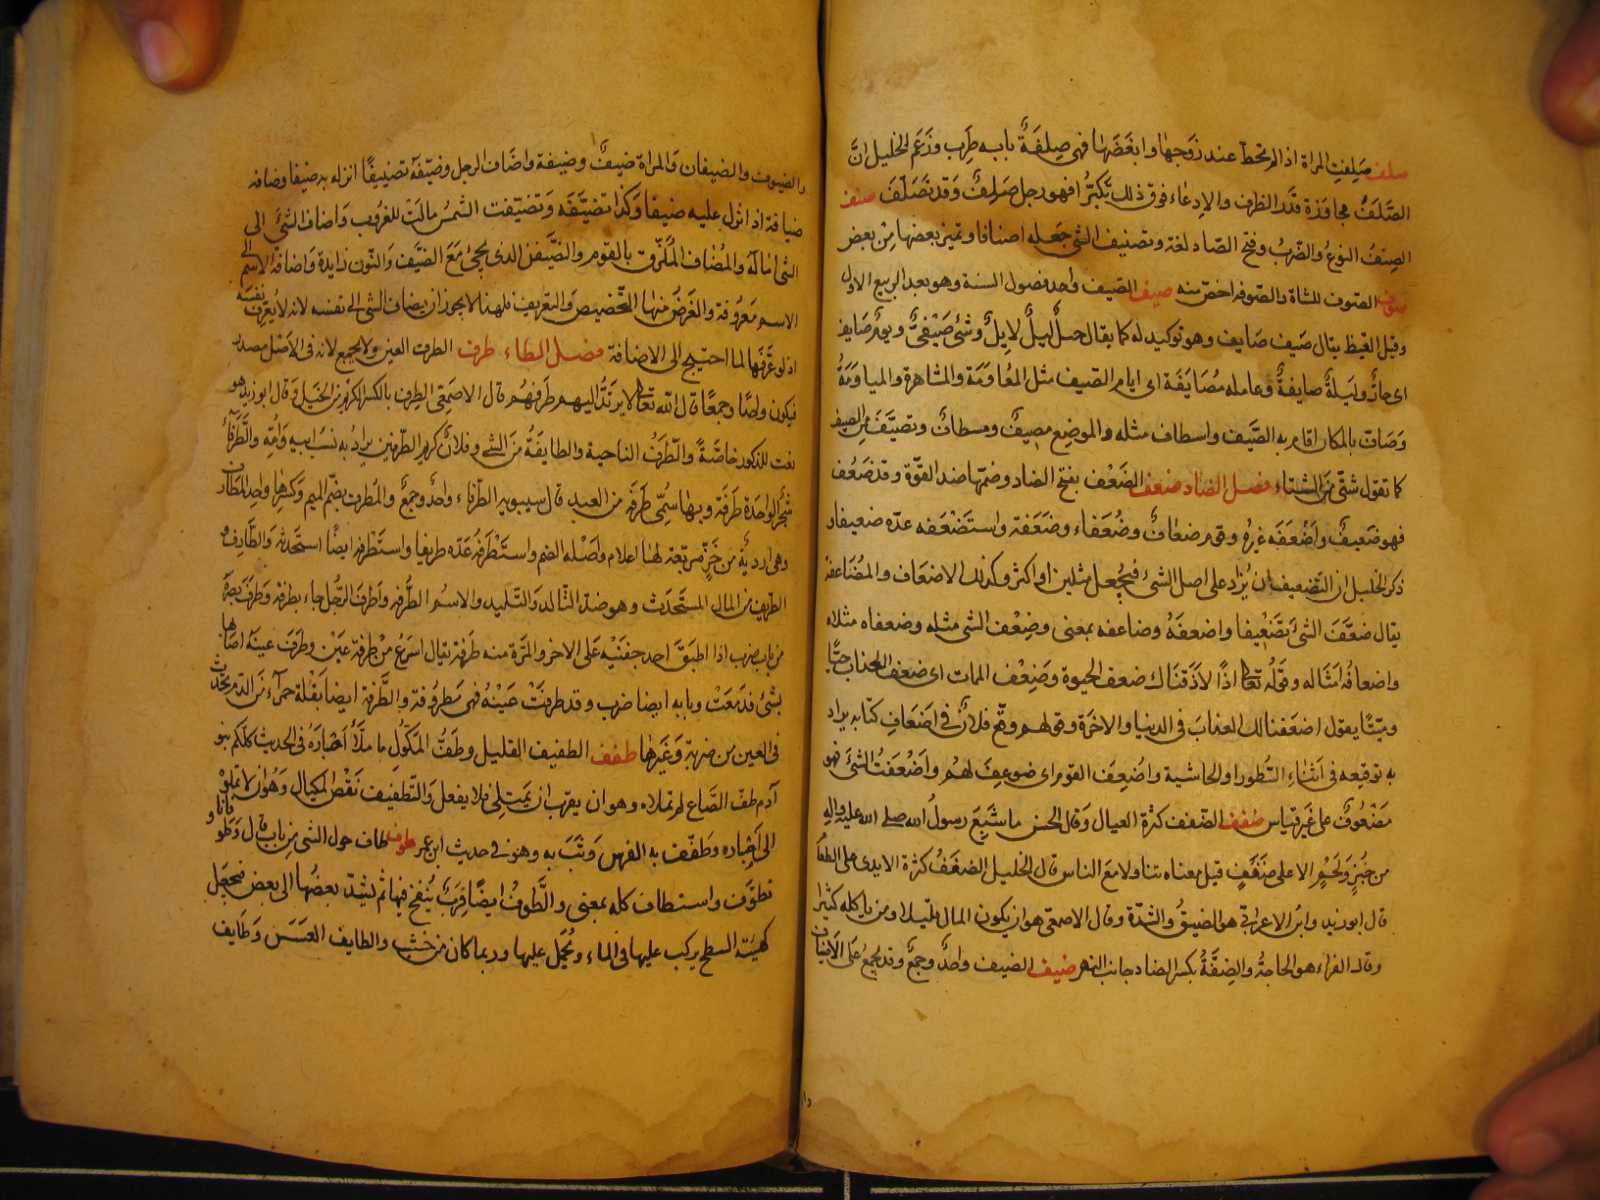 صلف صلفت المراة اذا لم تحظ عند زوجها وابغضها فهي صلفة بابه طرب وزعم الخليل ان
الصلف مجاوزة قدر الظرف والادعاء فوق ذلك تكبرا فهو رجل صلف وقد تصلف صنف
الصنف النوع والضرب وفتح الصاد لغة وتصنيف الشئ جعله اصنافا وتميز بعضها من بعض
صوف الصوف للشاة والصوفه اخص منه صيف الصيف واحد فصول السنة وهو بعد الربيع الاول
وقبل القيظ يقال صيف صايف وهو توكيد له كما يقال ليل لايل وشئ صيفي ويوم صايف
اى حار وليلة صايفة وعامله مصايفة اى ايام الصيف مثل المعاومة والمشاهرة والمياومة
وصاف بالمكان اقام به الصيف واصطاف مثله والموضع مصيف ومصطاف وتصيف من الصيف
كما تقول شتى من الشتاء فصل الضاد ضعف الضعف بفتح الضاد وضمها ضد القوة وقد ضعف
فهو ضعيف واضعفه غيره وقوم ضعاف وضعفاء وضعفة واستضعفه عده ضعيفا و
ذكر الخليل ان التضعيف ان يزاد على اصل الشئ فيجعل مثلين او اكثر وكذلك الاضعاف والمضاعفة
يقال ضعف الشئ تضعيفا واضعفه وضاعفه بمعنى وضعف الشئ مثله وضعفاه مثلاه
واضعافه امثاله وقوله تعا اذا لاذقناك ضعف الحيوة وضعف الممات اى ضعف العذاب حيا
وميتا يقول اضعفنا لك العذاب في الدنيا والاخرة وقولهم وقع فلان في اضعاف كتابه يراد
به توقيعه في اثناء السطور او الحاشية واضعف القوم اى ضوعف لهم واضعفت الشئ فهو
مضعوف على غير قياس ضفف الضفف كثرة العيال وقال الحسن ما شبع رسول الله صلى الله عليه واله
من خبز ولحم الا على ضفف قيل معناه تناولا مع الناس قال الخليل الضفف كثرة الايدى على الطعا
قال ابو زيد وابن الاعرابي هو الضيق والشدة وقال الاصمعى هو ان يكون المال قليلا ومن ياكله كثيرا
وقال الفراء هو الحاجة والضفة بكسر الضاد جانب النهر ضيف الضيف واحد وجمع وقد يجمع على الاضياف
والضيوف والضيفان والمراة ضيف وضيفة واضاف الرجل وضيفه تضييفا انزله به ضيفا وضافه
ضيافة اذا نزل عليه ضيفا وكذا تضيفه وتضيفت الشمس مالت للغروب واضاف الشئ الى
الشئ اماله والمضاف الملزق بالقوم والضيفن الذى يجئ مع الضيف والنون زايدة واضافة الاسم الى
الاسم معروفة والغرض منها التخصيص والتعريف فلهذا لا يجوز ان يضاف الشئ الى نفسه لانه لا يعرف نفسه
اذ لو عرفها لما احتيج الى الاضافة فصل الطاء طرف الطرف العين ولا يجمع لانه في الاصل مصدر
فيكون واحدا وجمعا قال الله تعا لا يرتد اليهم طرفهم قال الاصمعى الطرف بالكسر الكريم من الخيل وقال ابو زيد هو
نعت للذكور خاصة والطرف الناحية والطايفة من الشئ وفلان كريم الطرفين يراد به نسب ابيه وامه والطرفاء
شجر الواحدة طرفة وبها سمى طرفة من العبد قال سيبويه الطرفاء واحد وجمع والمطرف بضم الميم وكسرها واحد المطارف
وهى اردية من خز مربعة لها اعلام واصله الضم واستطرفه عده طريفا واستطرفه ايضا استحدثه والطارف و
الطريف من المال المستحدث وهو ضد التالد والتليد والاسم الطرفه واطرف الرجل جاء بطرفة وطرف بصره
من باب ضرب اذا اطبق احد جفنيه على الاخر والمرة منه طرفة يقال اسرع من طرفة عين وطرف عينه اصابها
بشئ فدمعت وبابه ايضا ضرب وقد طرفت عينه فهى مطروفة والطرفة ايضا نقطة حمراء من الدم تحدث
في العين من ضربة وغيرها طفف الطفيف القليل وطف المكوك ما ملأ اصباره في الحديث كلكم بنو
آدم طف الصاع لم تملاه وهو ان يقرب ان يمتلئ فلا يفعل والتطفيف نقص المكيال وهو ان لا تملؤه
الى اصباره وطفف به الفرس وثب به وهو في حديث ابن عمر طوف طاف حول الشئ من باب قال وطوفانا و
تطوف واستطاف كله بمعنى والطوف ايضا قرب ينفخ فيها ثم يشد بعضها الى بعض فتجعل
كهيئة السطح يركب عليها في الماء ويحمل عليها وربما كان من خشب والطايف العسس وطايف